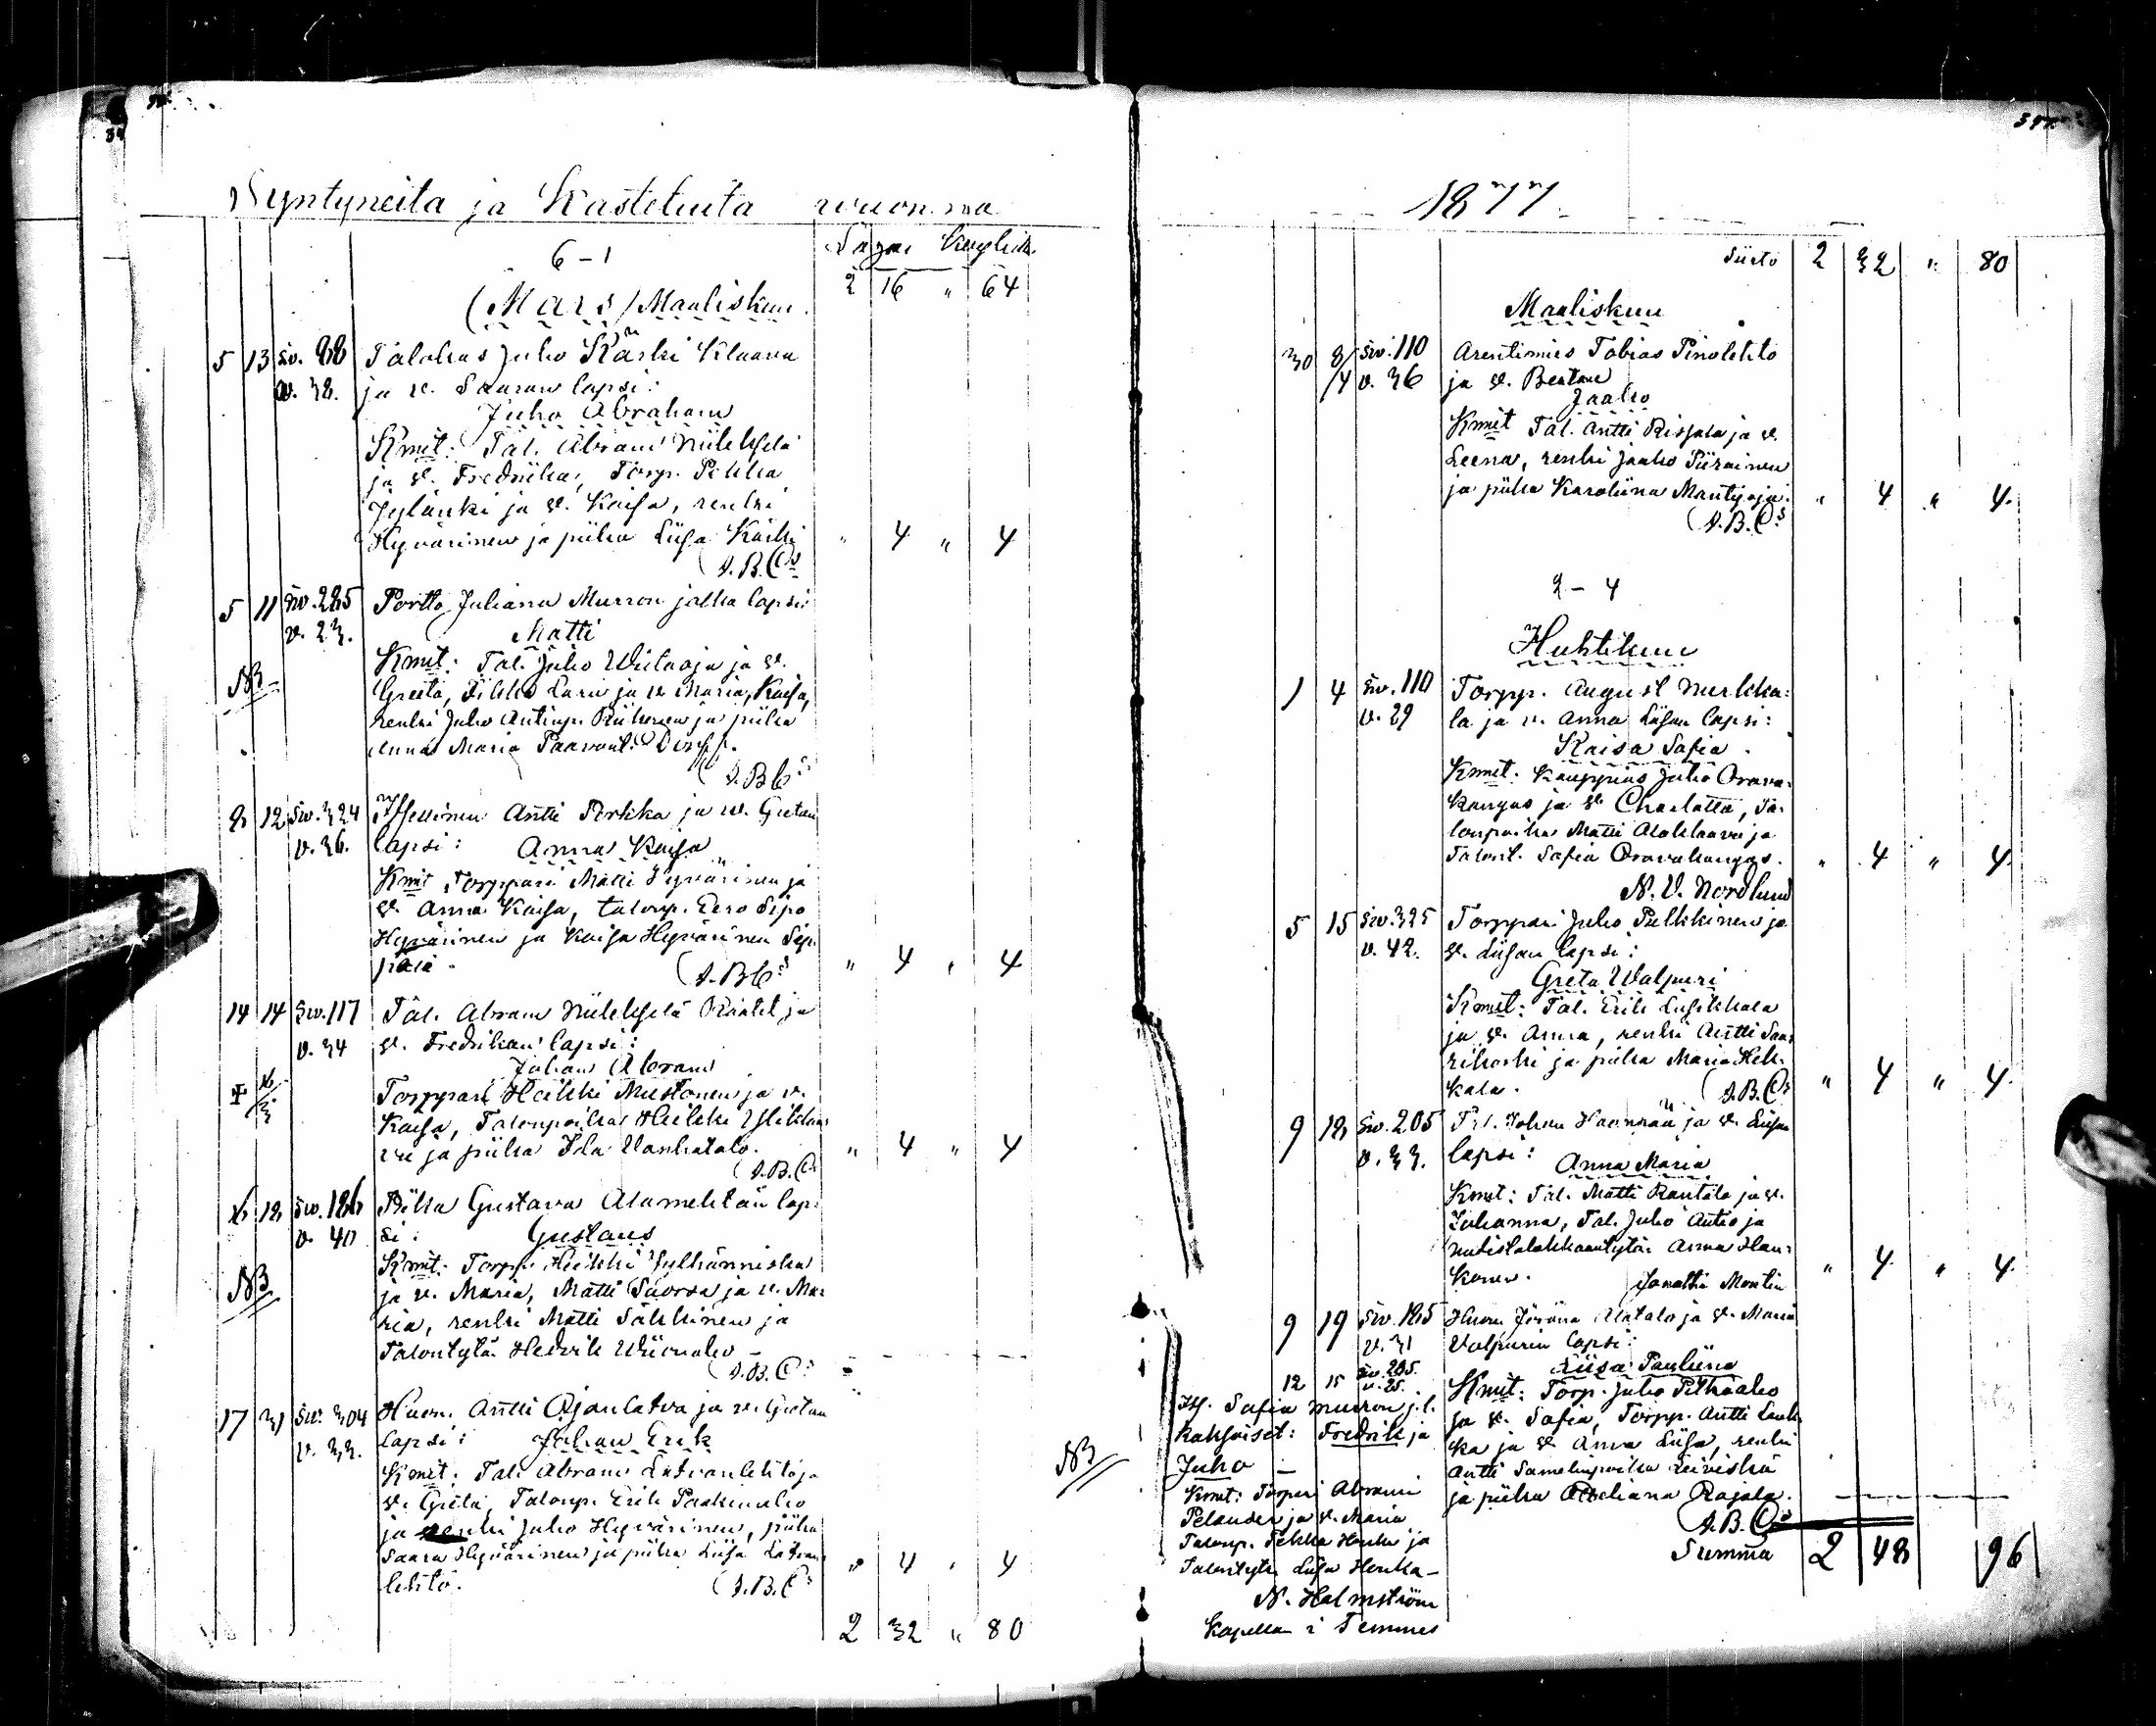 Syntyneitä ja Kastetuita vuonna
6 - 1
2 16 " 64
(Mars) Maaliskuu
5 13 siv. 88 Talokas Juho Kärki Klaara
v. 38. ja v. Saaran lapsi:
Juho Abraham
Kmit: Tal. Abram Niilekselä
ja v. Fredriika, Torp. Pekka
Jylänki ja v. Kaisa, renki
Hyvärinen ja piika Liisa Kärki " 4 " 4
(A.B.Cs
5 11 siv. 285 Portto Juliana Murron jalka lapsi:
v. 23. Matti
Kmit: Tal. Juho Wiitaoja ja v.
NB Greeta, Pikko Lari ja v. Maria, Kaisa,
renki Juho Antinp. ja piika
Anna Maria Paavont.
(A.B.Cs
8 12 siv. 324 Itsellinen Antti Pirkka ja v. Gretan
v. 36. lapsi: Anna Kaisa
Kmit Torppari Matti Hyvärinen ja
v. Anna Kaisa, talonp. Eero Sipo
Hyvärinen ja Kaisa Hyvärinen
(A.B.Cs " 4 " 4
14 14 siv. 117 Tal. Abram Niilekselä ja
v. 34 v. Fredrikan lapsi:
Johan Abram
Torppari Heikki Mustonen ja v.
Kaisa, Talonpoika Heikki
ja piika Ida Vanhatalo. " 4 " 4
(A.B.Cs
16 18 siv. 186 Piika Gustava Alamehtän lap-
v. 40 si: Gustaus
Kmit: Torp. Heikki
NB ja v. Maria, Matti Saorsa ja v. Ma-
ria, renki Matti Sälkkinen ja
Talontytär Hedvik
(A.B.Cs
17 31 siv. 304 Huon. Antti Ojanlatva ja v. Gretan
v. 33. lapsi: Johan Erik
Kmit: Tal. Abram Latvanlehto ja
v. Greta, Talonp. Erik Paakinaho
ja renki Juho Hyvärinen, piika
Saara Hyvärinen ja piika Liisa Latvan- " 4 " 4
lehto. (A.B.Cs
2 32 " 80
1877.
Siirto 2 32 " 80
Maaliskuu
30 8/4 siv. 110 Arentimies Tobias Pinolehto
v. 36 ja v. Beatan
Jaako
Kmit Tal. Antti Rissala ja v.
Leena, renki Jaako Piirainen
ja piika Karoliina Mäntyoja. " 4 " 4.
(A.B.Cs
2 - 4
Huhtikuu
1 4 siv. 110 Torpp. August Nurkka-
v. 29 la ja v. Anna Liisan lapsi:
Kaisa Safia
Kmit. Kauppias Juho Orava-
kangas ja v. Charlotta, Ta-
lonpoika Matti Alaklaava ja
Talont. Safia Oravakangas. " 4 " 4
N. V. Nordlund
5 15 siv. 325 Torppari Juho Pulkkinen ja
v. 42. v. Liisan lapsi:
Greta Walpuri
Kmit: Tal. Erik Lusikkala
ja v. Anna, renki Antti Saa-
rikoski ja piika Maria Heik-
kala. (A.B.Cs " 4 " 4.
9 18 siv. 205 Johan ja v. Liisan
v. 33. lapsi: Anna Maria
Kmit: Tal. Matti Rantala ja v.
Johanna, Tal. Juho Antio ja
Anna Han-
konen. " 4 " 4.
9 19 siv. 185 Huon. Alatalo ja v. Maria
v. 31 Valpurin lapsi:
Liisa Pauliina
Kmit: Torp. Juho Pitkäaho
ja v. Safia, Torpp. Antti Lauk-
ka ja v. Anna Liisa, renki
Antti Samelinpoika Leiviskä
ja piika Rajala.
(A.B.Cs
Summa 2 48 96
12 15 siv. 285.
v. 25.
Itf. Safia Murron j. l.
NB kaksoiset: Fredrik ja
Juho –
Kmit: Torpari Abrami
Pelander ja v. Maria
Talonp. Pekka ja
Talontytr. Liisa
N. Holmström
Kapellan i Temmes